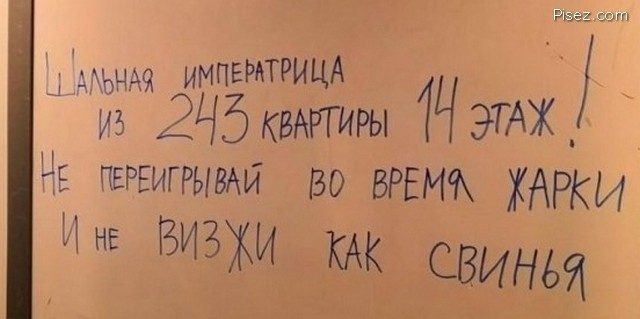 Pisez.com
Шальная императрица
из 243 квартиры 14 этаж!
Не переигрывай во время жарки
и не визжи как свинья